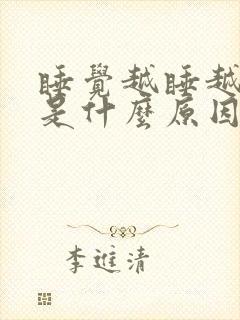 睡覺越睡越
是什麼原因
李進清